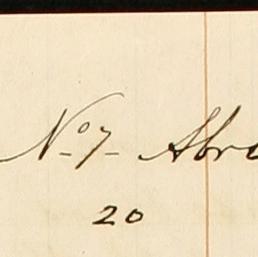 No 7- Abra
20